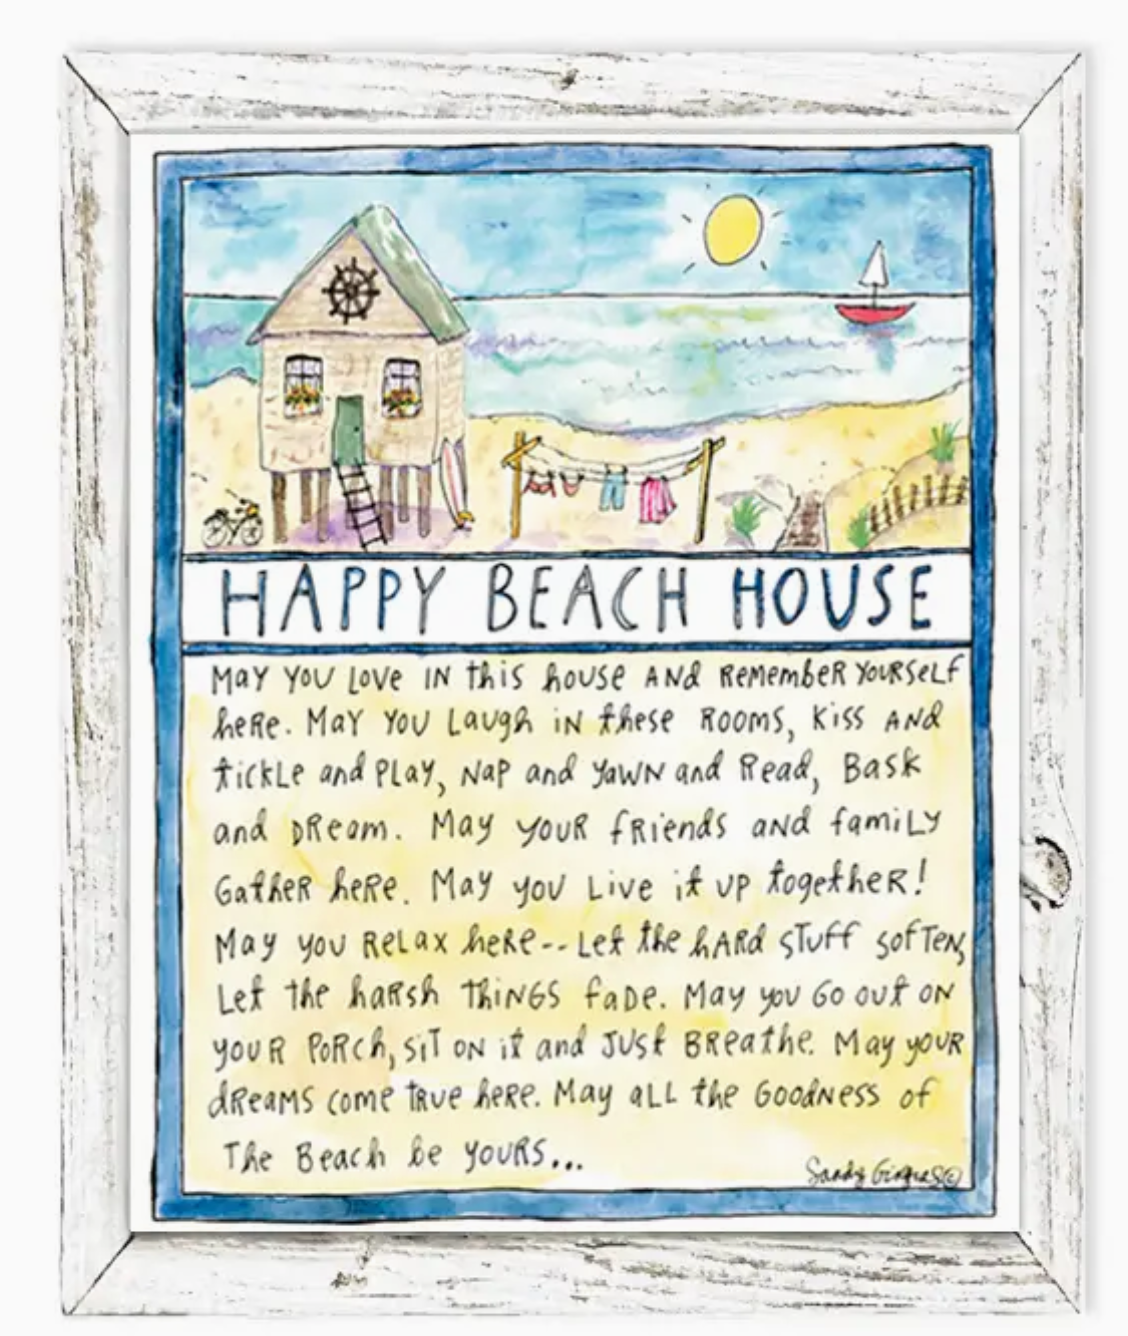 HAPPY BEACH HOUSE
MAY YOU LOVE IN this house AND ReMemBeR YOURSeLF
heRe. MAY YOU LaUgh iN these ROOMS, KiSS AND
tickLe and PLAY, NAP and YAWN and Read, BASK
and DReam. May YOUR fRieNds aNd famiLY
GatheR heRe. May you Live it UP togetheR!
May you ReLax heRe-- Let the hARd STUFF SOFTEN,
Let the haRsh THiNGS faDe. May you GO OUT ON
YOUR PoRch, SiT ON it and JUSt BReathe. May youR
dReaMS come TRUe heRe. May aLL the GOOdNess of
The Beach be YOURS...
Sandy Gingras ©